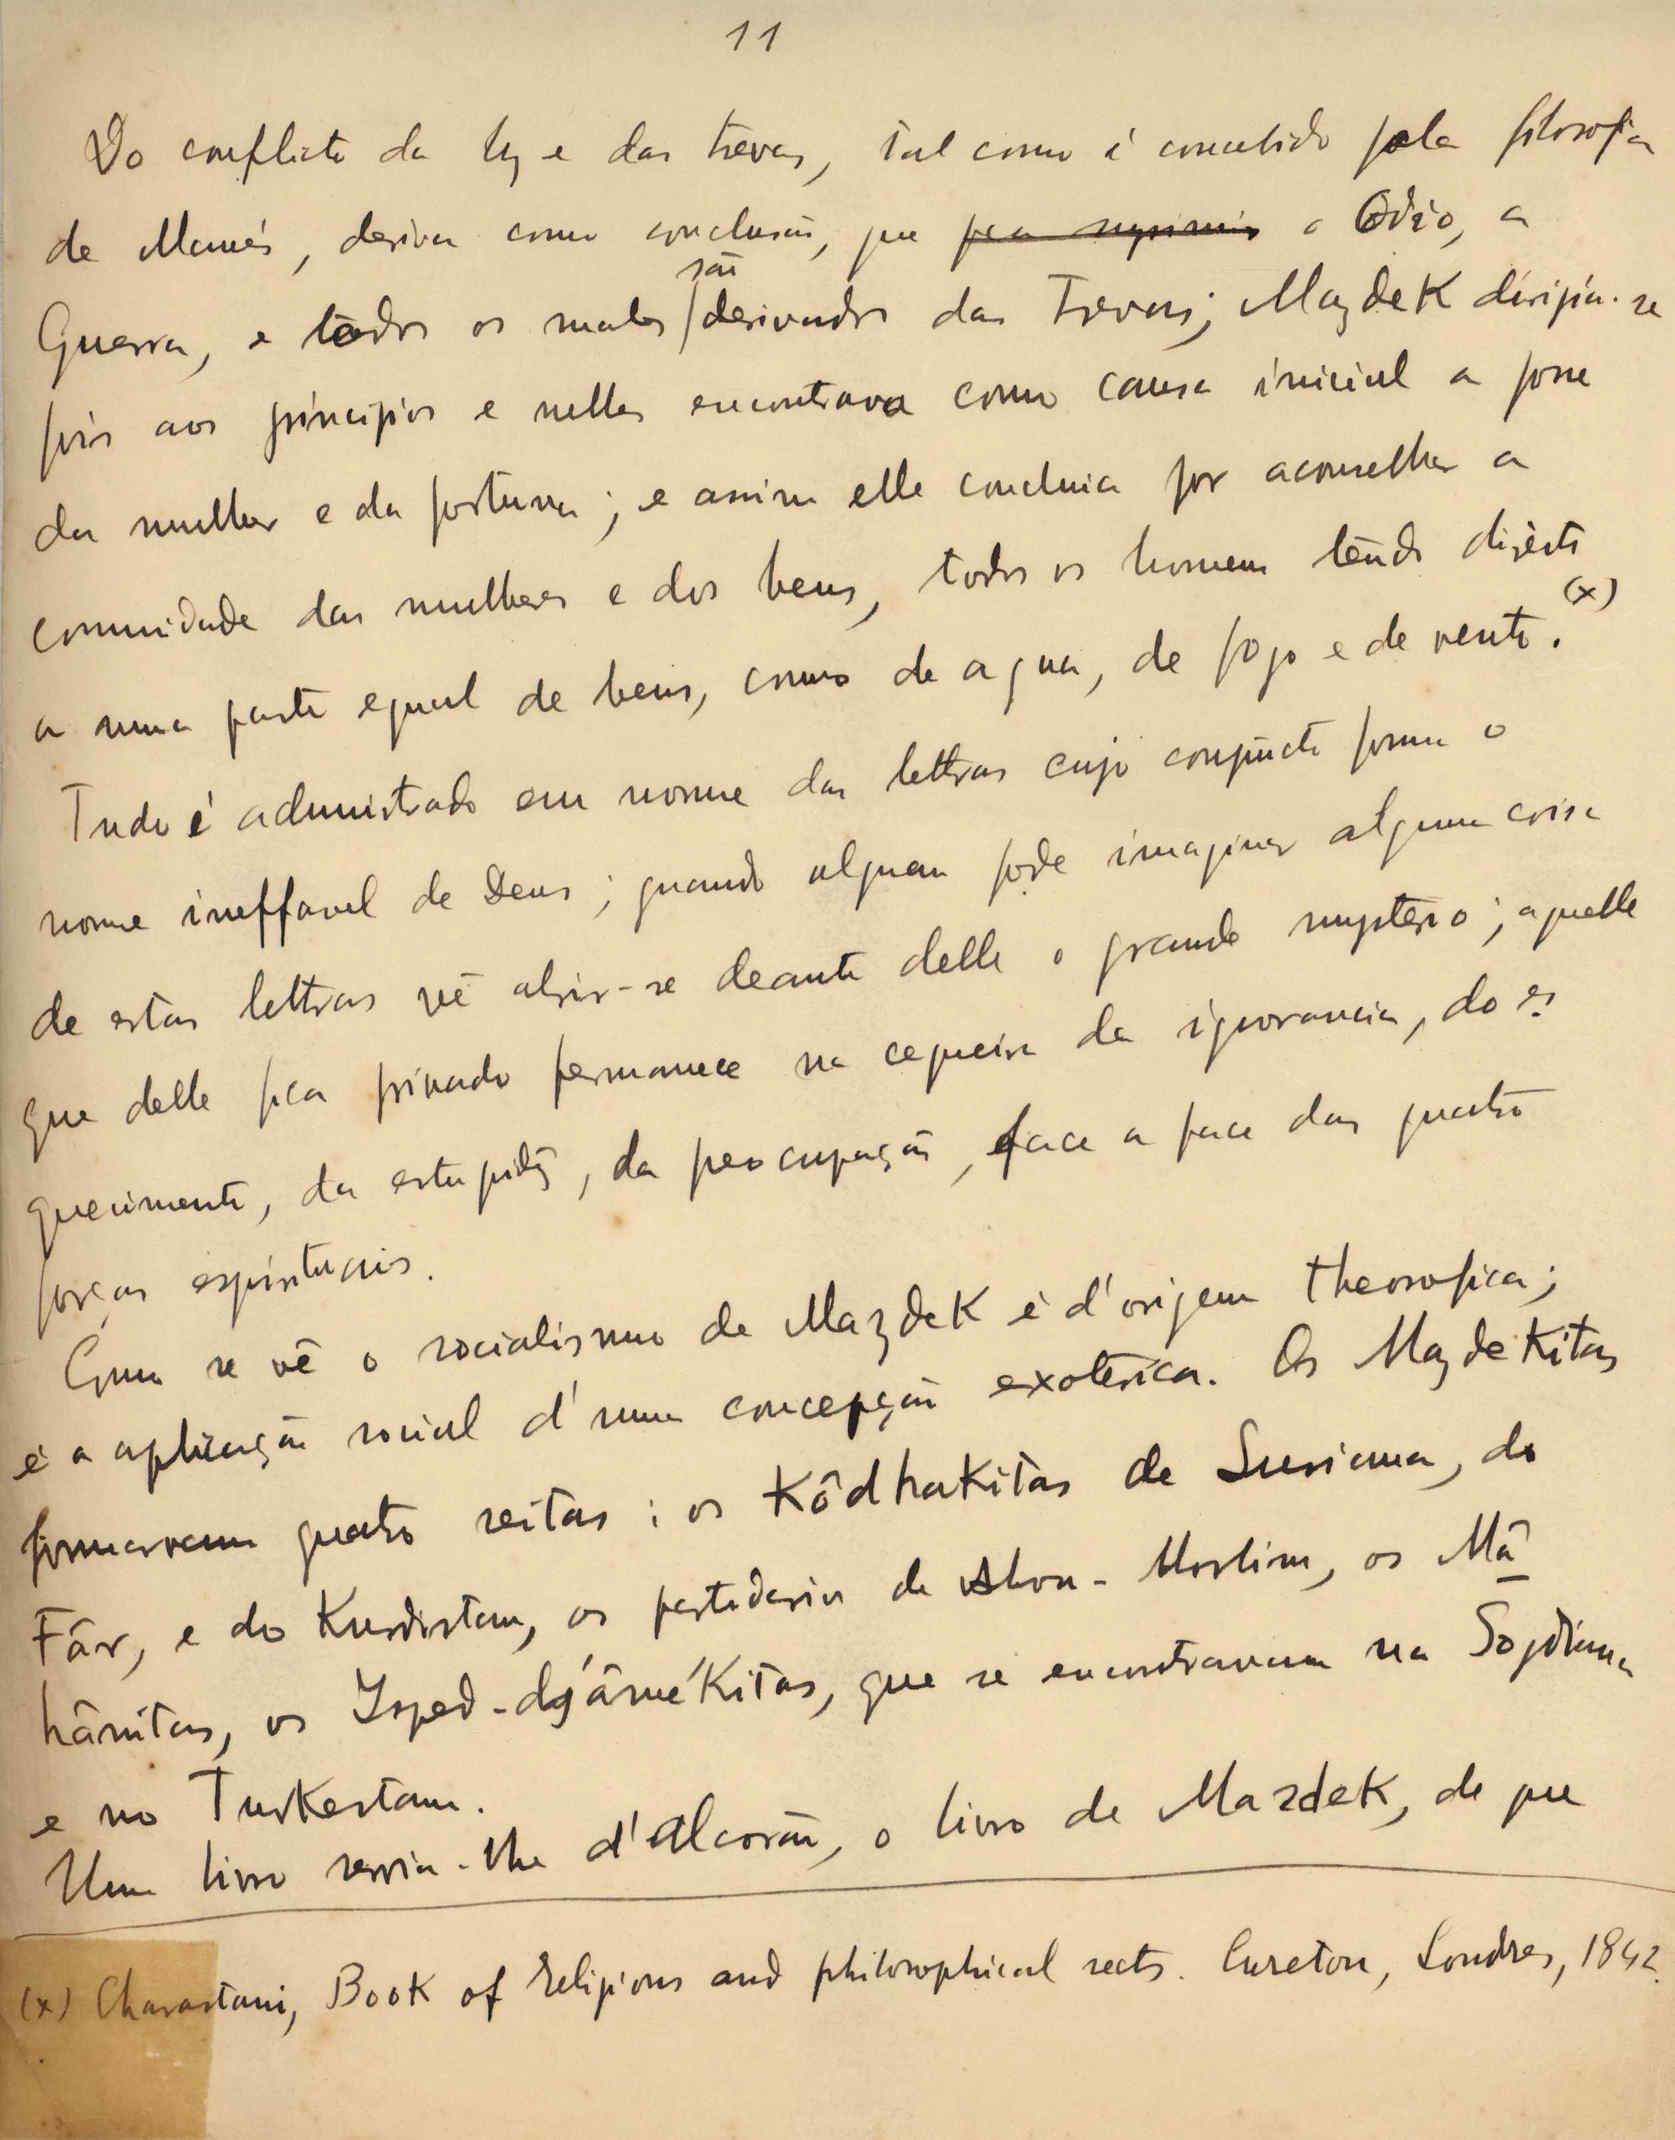 11
Do conflicto da luz e das trevas, tal como é concebido pela filosofia
de Manés, deriva como conclusão, que o Odio, a
são
Guerra, e todos os males derivados das Trevas; Mazdek dirigia-se
pois aos principios e nelles encontrava como causa inicial a posse
da mulher e da fortuna; e assim elle concluia por aconselhar a
comunidade das mulheres e dos bens, todos os homens tendo direito
a uma parte egual de bens, como de agua, de fogo e de vento. (x)
Tudo é admnistrado em nome das lettras cujo conjuncto forma o
nome ineffavel de Deus; quando alguem pode imaginar alguma coisa
de estas lettras vê abrir-se deante delle o grande mysterio; aquelle
que delle fica privado permanece na cegueira da ignorancia, do es
quecimento, da estupidez, da preocupação, face a face das quatro
forças espirituais.
Como se vê o socialismo de Mazdek é d'origem theosofica;
é a aplicação social d'uma concepção exoterica. Os Mazdekitas
formavam quatro seitas: os Kôdhakitas de Susiana, do
Fâr, e do Kurdistam, os partidarios de Abou-Moslim, os Mâ
hânitas, os Isped-djâmékitas, que se encontravam na Sogdiana
e no Turkestam.
Um livro servia-lhe d'Alcorão, o livro de Mazdek, de que
(x) Charastani, Book of religions and philosophical sects. Cureton, Londres, 1842.